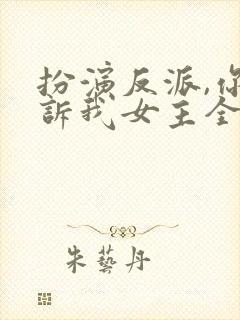 扮演反派,你
訴我女主全
朱藝丹